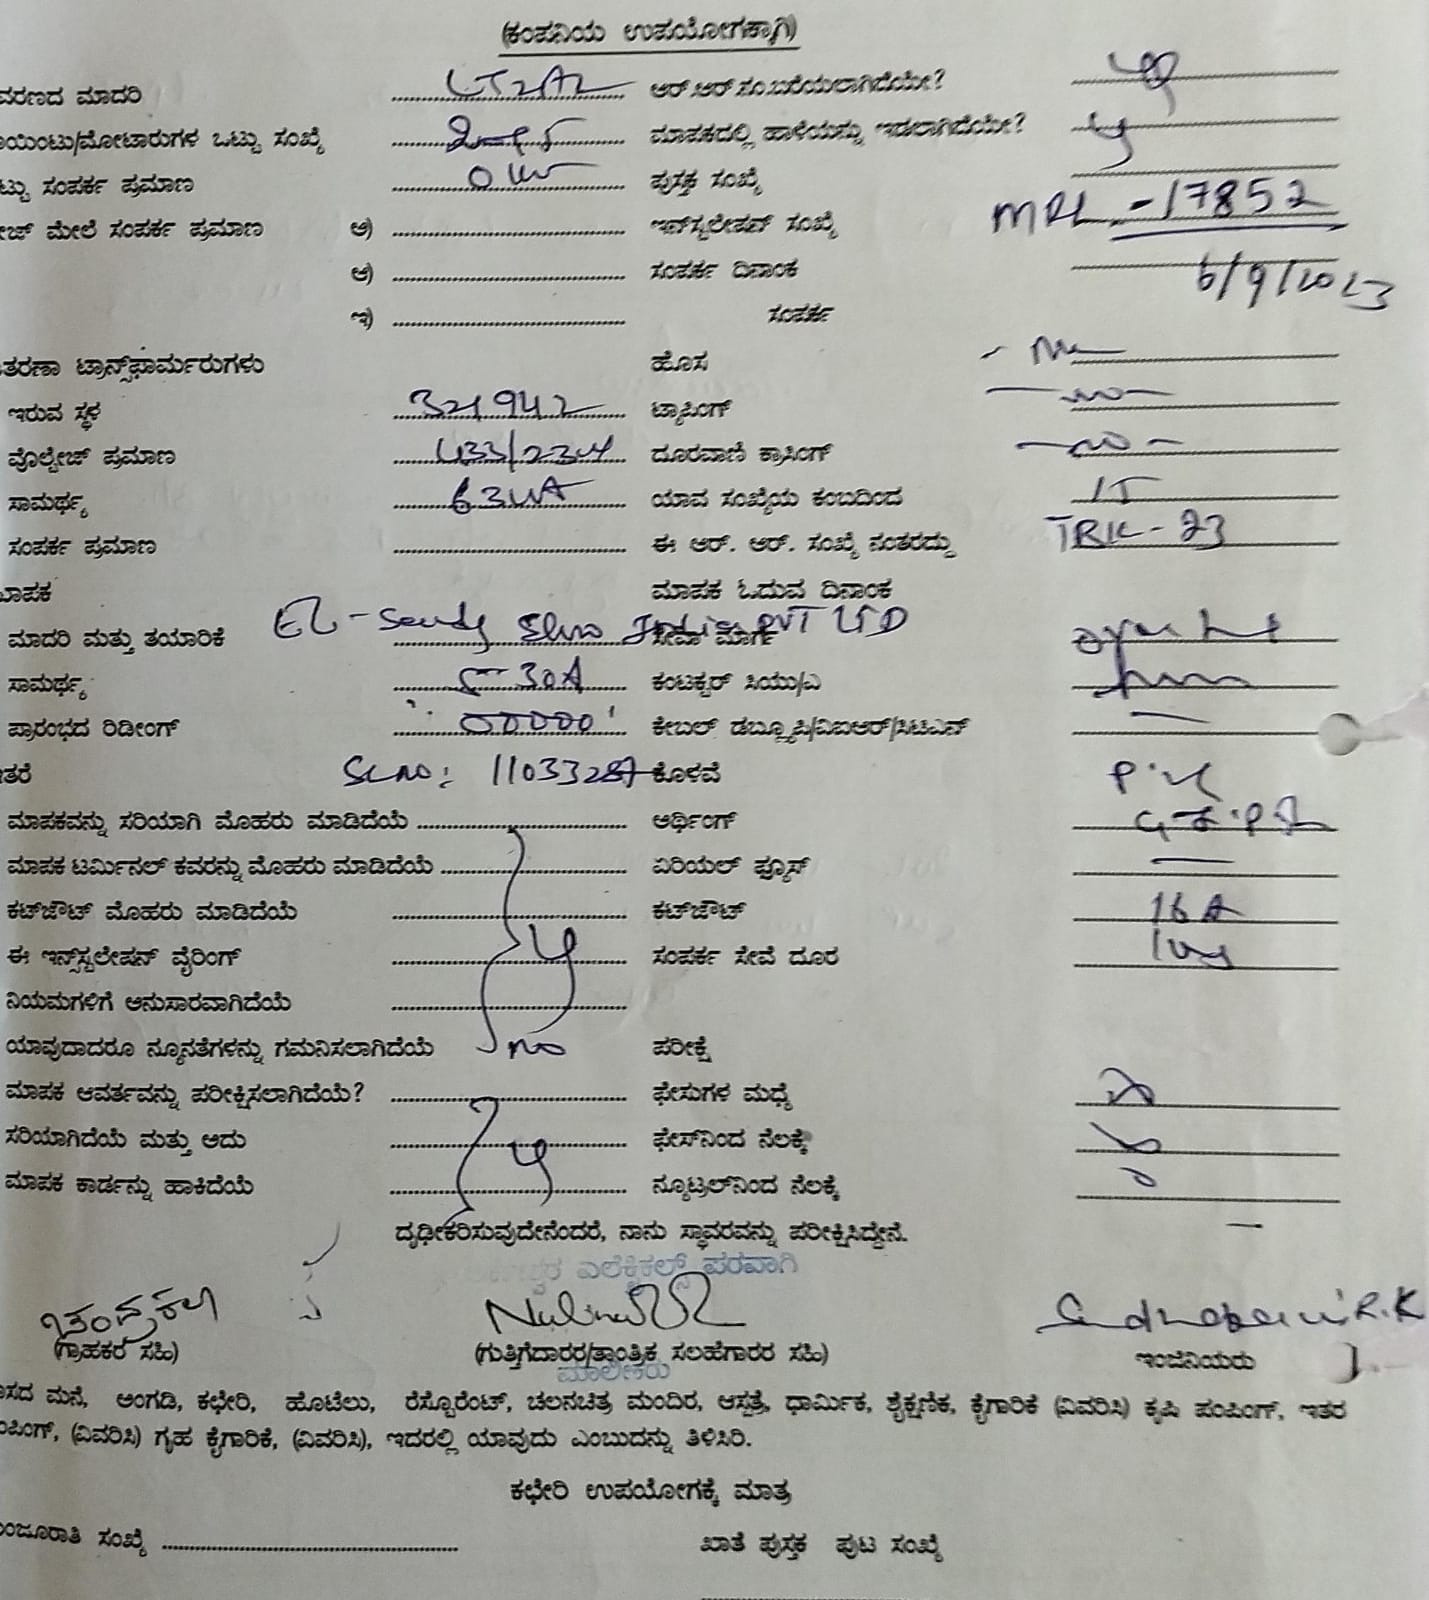 (ಕಂಪನಿಯ ಉಪಯೋಗಕ್ಕಾಗಿ)
ವರಣದ ಮಾದರಿ LT2A2 ಆರ್.ಆರ್.ಸಂ.ಬರೆಯಲಾಗಿದೆಯೇ?
ಯಿಂಟು/ಮೋಟಾರುಗಳ ಒಟ್ಟು ಸಂಖ್ಯೆ ಮಾಪಕದಲ್ಲಿ ಹಾಳೆಯನ್ನು ಇಡಲಾಗಿದೆಯೇ?
ಟ್ಟು ಸಂಪರ್ಕ ಪ್ರಮಾಣ ಪುಸ್ತಕ ಸಂಖ್ಯೆ
ೇಜ್ ಮೇಲೆ ಸಂಪರ್ಕ ಪ್ರಮಾಣ ಅ) ಇನ್‌ಸ್ಟಲೇಷನ್ ಸಂಖ್ಯೆ MRL - 17852
ಆ) ಸಂಪರ್ಕ ದಿನಾಂಕ 6/9/2023
ಇ) ಸಂಪರ್ಕ
ತರಣಾ ಟ್ರಾನ್ಸ್‌ಫಾರ್ಮರುಗಳು ಹೊಸ
ಇರುವ ಸ್ಥಳ 321942 ಟ್ಯಾಪಿಂಗ್ - no -
ವೋಲ್ಟೇಜ್ ಪ್ರಮಾಣ 433/230V ದೂರವಾಣಿ ಕ್ರಾಸಿಂಗ್ - no -
ಸಾಮರ್ಥ್ಯ 63 KVA ಯಾವ ಸಂಖ್ಯೆಯ ಕಂಬದಿಂದ
ಸಂಪರ್ಕ ಪ್ರಮಾಣ ಈ ಆರ್. ಆರ್. ಸಂಖ್ಯೆ ನಂತರದ್ದು TRK - 23
ಮಾಪಕ ಮಾಪಕ ಓದುವ ದಿನಾಂಕ
ಮಾದರಿ ಮತ್ತು ತಯಾರಿಕೆ India PVT LTD ಸೇವಾ ಮಾರ್ಗ
ಸಾಮರ್ಥ್ಯ 5-30A ಕಂಟಕ್ಟರ್ ಸಿಯು/ಎ
ಪ್ರಾರಂಭದ ರಿಡೀಂಗ್ 00000 ಕೇಬಲ್ ಡಬ್ಲ್ಯೂಪಿ/ವಿಐಆರ್/ಸಿಟಿಎಸ್
ತರೆ SL no: 11033287 ಕೊಳವೆ
ಮಾಪಕವನ್ನು ಸರಿಯಾಗಿ ಮೊಹರು ಮಾಡಿದೆಯೆ ಅರ್ಥಿಂಗ್
ಮಾಪಕ ಟರ್ಮಿನಲ್ ಕವರನ್ನು ಮೊಹರು ಮಾಡಿದೆಯೆ ಏರಿಯಲ್ ಫ್ಯೂಸ್
ಕಟ್‌ಔಟ್ ಮೊಹರು ಮಾಡಿದೆಯೆ ಕಟ್‌ಔಟ್ 16 A
ಈ ಇನ್ಸ್‌ಸ್ಟಲೇಷನ್ ವೈರಿಂಗ್ ಸಂಪರ್ಕ ಸೇವೆ ದೂರ
ನಿಯಮಗಳಿಗೆ ಅನುಸಾರವಾಗಿದೆಯೆ
ಯಾವುದಾದರೂ ನ್ಯೂನತೆಗಳನ್ನು ಗಮನಿಸಲಾಗಿದೆಯೆ no ಪರೀಕ್ಷೆ
ಮಾಪಕ ಆವರ್ತವನ್ನು ಪರೀಕ್ಷಿಸಲಾಗಿದೆಯೆ? ಫೇಸುಗಳ ಮಧ್ಯೆ
ಸರಿಯಾಗಿದೆಯೆ ಮತ್ತು ಅದು ಫೇಸ್‌ನಿಂದ ನೆಲಕ್ಕೆ
ಮಾಪಕ ಕಾರ್ಡನ್ನು ಹಾಕಿದೆಯೆ ನ್ಯೂಟ್ರಲ್‌ನಿಂದ ನೆಲಕ್ಕೆ
ದೃಢೀಕರಿಸುವುದೇನೆಂದರೆ, ನಾನು ಸ್ಥಾವರವನ್ನು ಪರೀಕ್ಷಿಸಿದ್ದೇನೆ.
ಎಲೆಕ್ಟ್ರಿಕಲ್ಸ್ ಪರವಾಗಿ
ಚಂದ್ರಕಲ R.K
(ಗ್ರಾಹಕರ ಸಹಿ) (ಗುತ್ತಿಗೆದಾರರ/ತಾಂತ್ರಿಕ ಸಲಹೆಗಾರರ ಸಹಿ) ಇಂಜಿನಿಯರು
ಮಾಲೀಕರು
ಾಸದ ಮನೆ, ಅಂಗಡಿ, ಕಛೇರಿ, ಹೊಟೆಲು, ರೆಸ್ಟೊರೆಂಟ್, ಚಲನಚಿತ್ರ ಮಂದಿರ, ಆಸ್ಪತ್ರೆ, ಧಾರ್ಮಿಕ, ಶೈಕ್ಷಣಿಕ, ಕೈಗಾರಿಕೆ (ವಿವರಿಸಿ) ಕೃಷಿ ಪಂಪಿಂಗ್, ಇತರ
ಂಪಿಂಗ್, (ವಿವರಿಸಿ) ಗೃಹ ಕೈಗಾರಿಕೆ, (ವಿವರಿಸಿ), ಇದರಲ್ಲಿ ಯಾವುದು ಎಂಬುದನ್ನು ತಿಳಿಸಿರಿ.
ಕಛೇರಿ ಉಪಯೋಗಕ್ಕೆ ಮಾತ್ರ
ಂಜೂರಾತಿ ಸಂಖ್ಯೆ ಖಾತೆ ಪುಸ್ತಕ ಪುಟ ಸಂಖ್ಯೆ